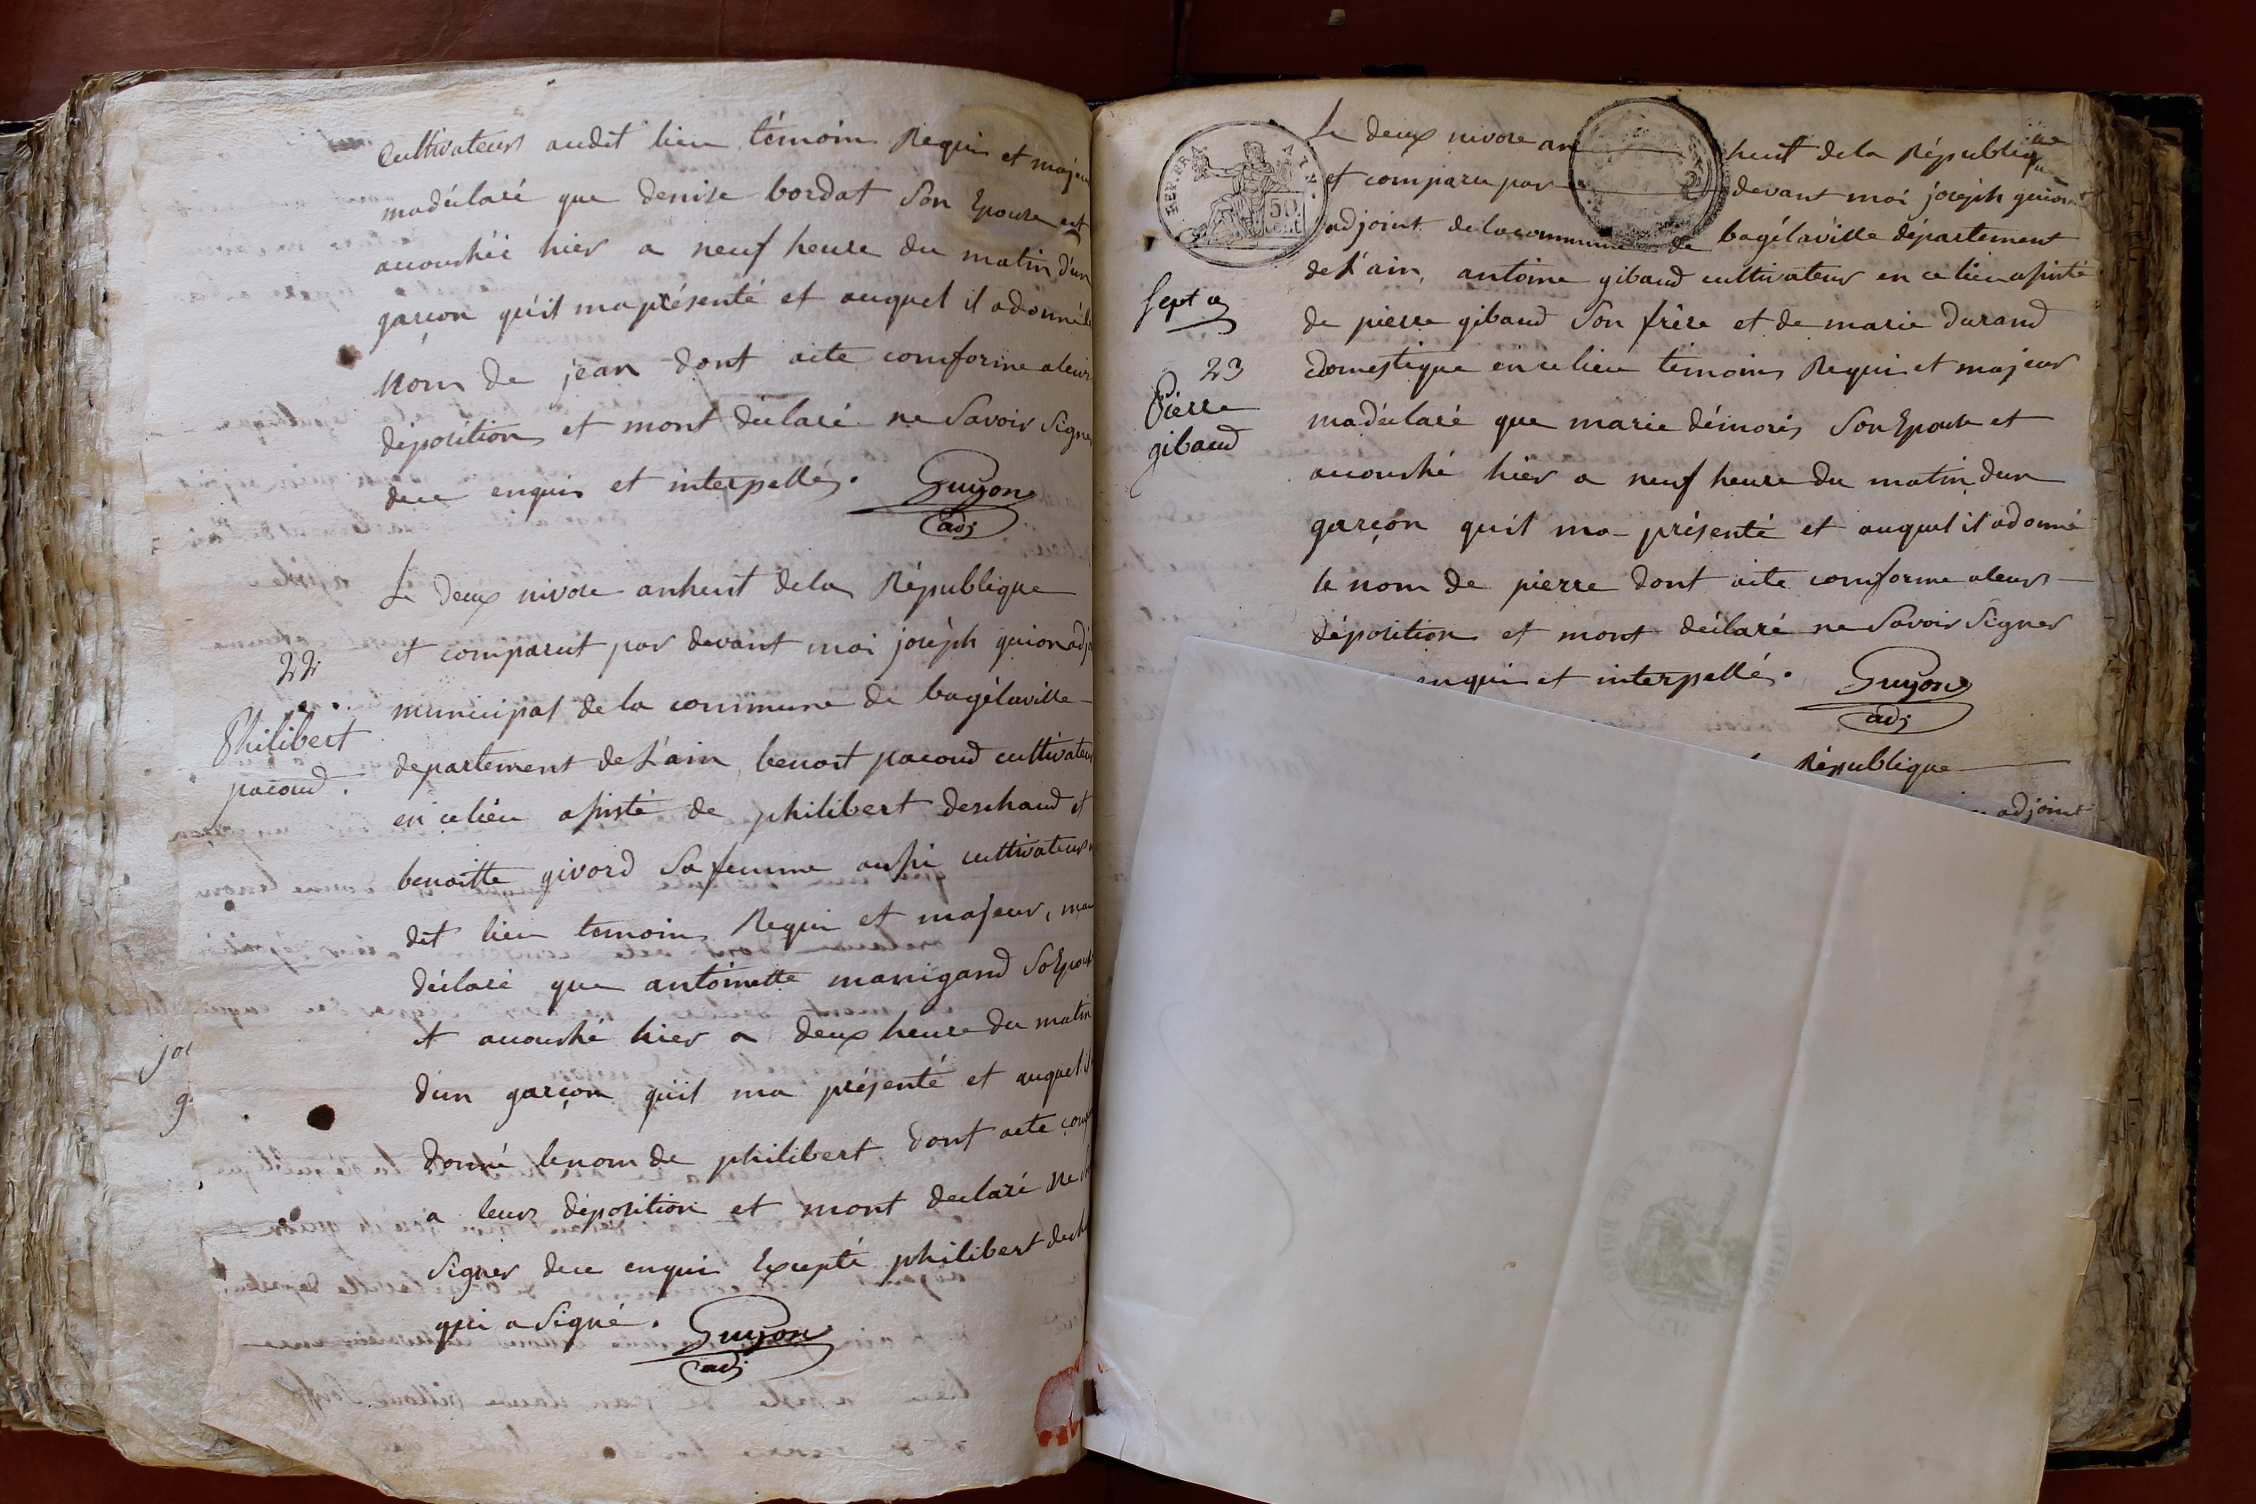 Cultivateurs audit lieu témoins Requis et majeur
madéclaré que denise bordat Son Epouse est
accouchéé hier a neuf heure du matin d'un
garçon quil ma présenté et auquel il adonné le
Nom de jean dont acte comforme aleurs
déposition et mont déclaré ne Savoir Signer
dece enquis et interpellés.
Guyon
adj
22
Philibert
pacoud.
Le deux nivose anhuit dela République
et comparut par devant moi joséph guion adj
municipal de la commune de bagélaville
departement de L'ain, benoit pacoud cultivateur
en celieu asisté de philibert deschaud et
benoitte givord Sa femme aussi cultivateurs
dit lieu temoins Requis et majeur, ma
déclaré que antoinette manigand So Epouse
et accouché hier a deux heure du matin
d'un garçon quil ma présenté et auquel il
donné lenom de philibert dont acte
a leurs déposition et mont declaré ne
Signer dece enquis Excepté philibert
qui a Signé.
Guyon
adj
joi
g
REP. FRA
50
cent
Le deux nivose an huit dela République
et comparu par devant moi joséph guion
adjoint delacommune de bagélaville département
de L'ain, antoine gibaud cultivateur en ce lieu asisté
Sept
de pierre gibaud Son frère et de marie durand
23
Pierre
gibaud
domestique en celieu témoins Requis et majeur
madéclaré que marie démoris Son Epouse et
accouché hier a neuf heure du matin dun
garçon quil ma présenté et auquel il adonné
le nom de pierre dont acte comforme aleurs
déposition et mont déclaré ne Savoir Signer
enquis et interpellé.
Guyon
adj
République
adjoint